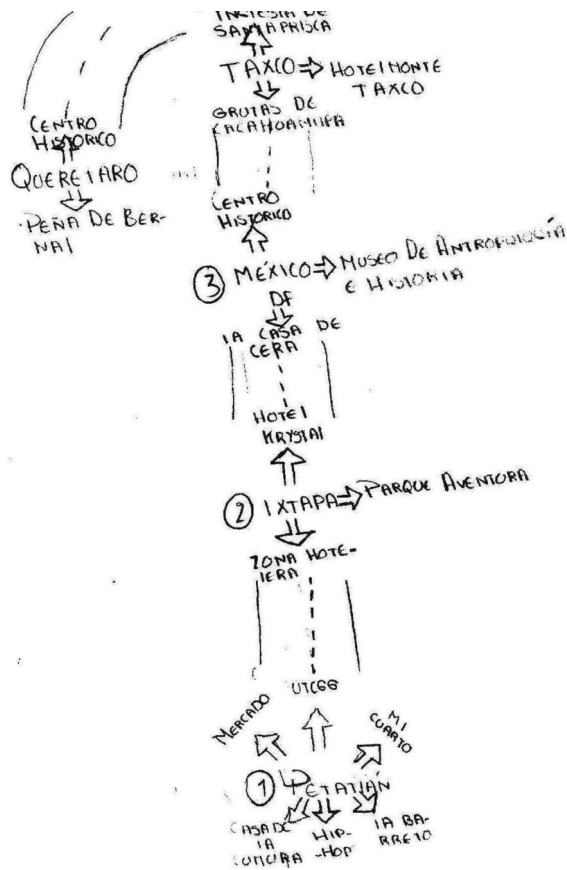 IGLESIA DE
SANTA PRISCA
TAXCO
HOTEl MONTE
TAXCO
GRUTAS DE
CACAHUAMILPA
CENTRO
HISTORICO
QUERETARO
PEÑA DE BER-
NAl
CENTRO
HISTORICO
3 MÉXICO
DF
MUSEO DE ANTROPOlOGÍA
E HISTORIA
lA CASA DE
CERA
HOTEl
KRYSTAl
2 IXTAPA
PARQUE AVENTURA
ZONA HOTE-
lERA
UTCGG
MERCADO
MI
CUARTO
1 PETATlÁN
CASA DE
lA
CUlTURA
HIP-
-HOP
lA BA-
RRETO